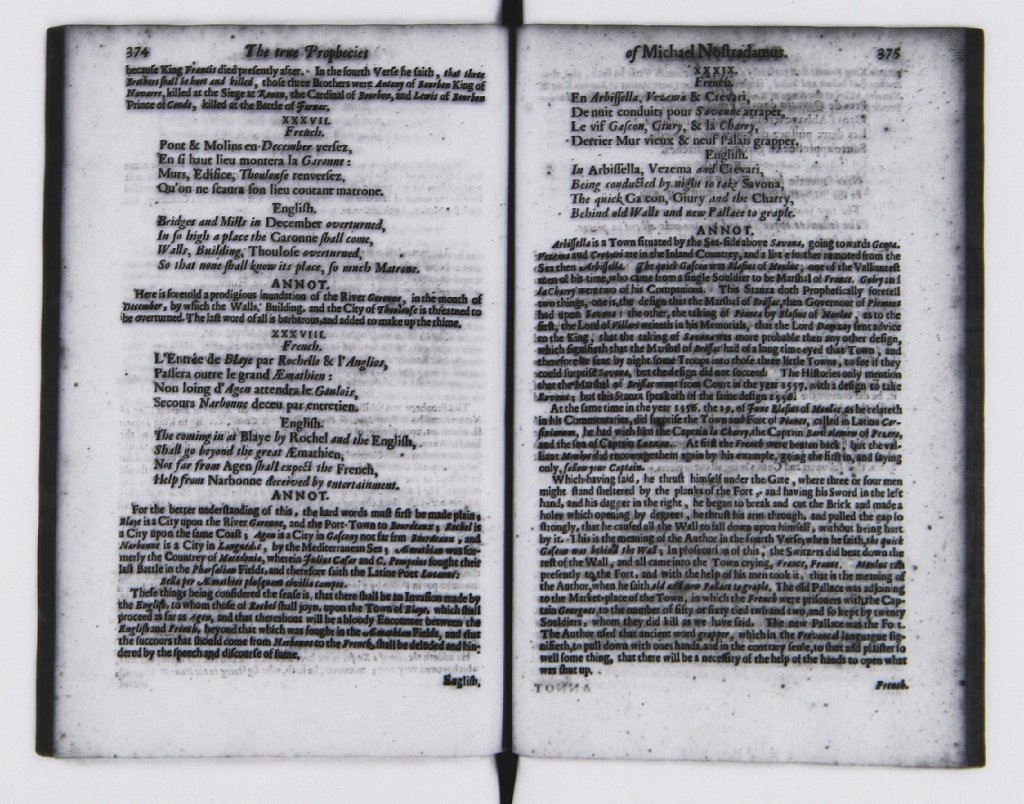 374 The true Prophecies
because King Francis died presently after. In the fourth Verse he saith, that three
Brothers shall be hurt and killed, those three Brothers were Antony of Bourbon King of
Navarre, killed at the Siege at Rouen, the Cardinal of Bourbon, and Lewis of Bourbon
Prince of Condé, killed at the Battle of Jarnac.
XXXVII.
French.
Pont & Molins en December versez,
En si haut lieu montera la Garonne:
Murs, Edifice, Thoulouse renversez,
Qu'on ne sçaura son lieu coutant matrone.
English.
Bridges and Mills in December overturned,
In so high a place the Garonne shall come,
Walls, Building, Thoulose overturned,
So that none shall know its place, so much Matrone.
ANNOT.
Here is foretold a prodigious inundation of the River Garonne, in the month of
December, by which the Walls, Building, and the City of Thoulose is threatned to
be overturned. The last word of all is barbarous, and added to make up the rhime.
XXXVIII.
French.
L'Entrée de Blaye par Rochelle & l'Anglios,
Passera outre le grand Æmathien:
Non loing d'Agen attendra le Gaulois,
Secours Narbonne deceu par entretien.
English.
The coming in at Blaye by Rochel and the English,
Shall go beyond the great Æmathien,
Not far from Agen shall expect the French,
Help from Narbonne deceived by entertainment.
ANNOT.
For the better understanding of this, the hard words must first be made plain;
Blaye is a City upon the River Garonne, and the Port-Town to Bourdeaux; Rochel is
a City upon the same Coast; Agen is a City in Gascony not far from Bourdeaux, and
Narbonne is a City in Languedoc, by the Mediterranean Sea; Æmathian was for-
merly the Country of Macedonia, wherein Julius Cæsar and C. Pompeius fought their
last Battle in the Pharsalian Fields, and therefore saith the Latine Poet Lucanus:
Bella per Æmathios plusquam civilia campos.
These things being considered the sense is, that there shall be an Invasion made by
the English, to whom those of Rochel shall joyn, upon the Town of Blaye, which shall
proceed as far as Agen, and that thereabout will be a bloody Encounter between the
English and French, beyond that which was fought in the Æmathian Fields, and that
the succours that should come from Narbonne to the French, shall be deluded and hin-
dered by the speech and discourse of some.
English,
of Michael Nostradamus. 375
XXXIX.
French.
En Arbissella, Vezema & Crevari,
De nuit conduits pour Savonne atraper,
Le vif Gascon, Giury, & la Charry,
Derrier Mur vieux & neuf Palais grapper.
English.
In Arbissella, Vezema and Crevari,
Being conducted by night to take Savona,
The quick Gascon, Giury and the Charry,
Behind old Walls and new Pallace to graple.
ANNOT.
Arbissella is a Town situated by the Sea-side above Savona, going towards Genoa.
Vezema and Crevari are in the Inland Country, and a little further remoted from the
Sea then Arbissella. The quick Gascon was Blasius of Monluc; one of the Valliantest
men of his time, who came from a single Souldier to be Marshal of France. Guiry and
la Charry were two of his Companions. This Stanza doth Prophetically foretell
two things, one is, the design that the Marshal of Brissac, then Governour of Piemont
had upon Savona: the other, the taking of Pianca by Blasius of Monluc; as to the
first, the Lord of Villars writeth in his Memorials, that the Lord sent advice
to the King, that the taking of Savona was more probable then any other design,
which signifieth that the Marshal of Brissac had of a long time eyed that Town, and
therefore he sent by night some Troups into those three little Towns, to see if they
could surprise Savona, but the design did not succeed. The Histories only mention
that the Marshal of Brissac went from Court in the year 1557. with a design to take
Savona; but this Stanza speaketh of the same design 1556.
At the same time in the year 1556. the 29. of June Blasius of Monluc, as he relateth
in his Commentaries, did surprise the Town and Fort of Pianca, called in Latine Cor-
, he had with him the Captain la Charry, the Captain Bartolomew of
and the son of Captain Luxan. At first the French were beaten back; but the val-
liant Monluc did encourage them again by his example, going the first in, and saying
only, follow your Captain.
Which having said, he thrust himself under the Gate, where three or four men
might stand sheltered by the planks of the Fort, and having his Sword in the left
hand, and his dagger in the right, he began to break and cut the Brick and made a
holes which opening by degrees, he thrust his arm through, and pulled the gap so
strongly, that he caused all the Wall to fall down upon himself, without being hurt
by it. This is the meaning of the Author in the fourth Verse, when he saith, the quick
Gascon was behind the Wall; In prosecution of this, the Switzers did beat down the
rest of the Wall, and all came into the Town crying, France, France. Monluc ran
presently to the Fort, and with the help of his men took it, that is the meaning of
the Author, when he saith, old and new Pallace to graple. The old Pallace was adjoining
to the Market-place of the Town, in which the French were prisoners with the Cap-
tain Gourgues, to the number of fifty or sixty tied two and two, and so kept by twenty
Souldiers, whom they did kill as we have said. The new Pallace was the Fort.
The Author used that ancient word grapper, which in the Provencal language sig-
nifieth, to pull down with ones hands, and in the contrary sense, to shut and plaister so
well some thing, that there will be a necessity of the help of the hands to open what
was shut up.
French.